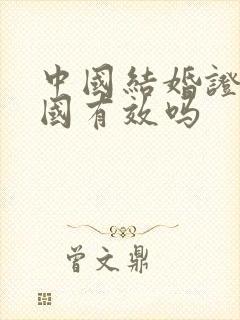 中國結婚證
國有效吗
曾文鼎